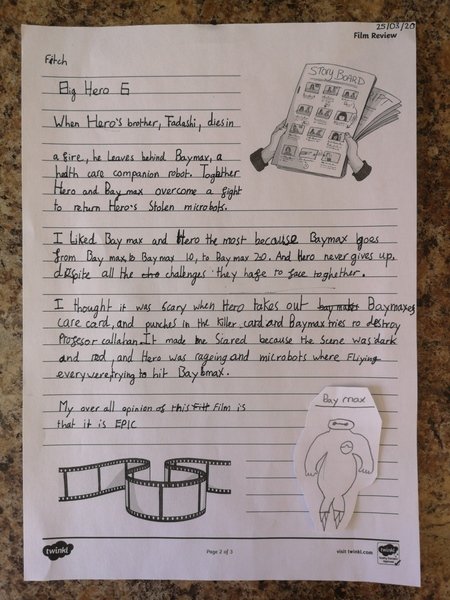 25/03/20
Film Review
Fitch
Big Hero 6
STORY BOARD
When Hero's brother, Tadashi, dies in
a fire, he leaves behind Baymax, a
health care companion robot. Together
Hero and Baymax overcome a fight
to return Hero's stolen microbots.
I liked Baymax and Hero the most because Baymax goes
from Baymax to Baymax 10, to Baymax 20. And Hero never gives up,
despite all the cha chalenges they hafe to face toghether.
I thought it was scary when Hero takes out bay makes Baymaxes
care card, and punches in the killer card and Baymax tries to destroy
Profesor callahan. It made me scared because the scene was dark
and red, and Hero was rageing and microbots where Fliying
everywere,trying to hit Baymax.
My over all opinion of this Film Film is
that it is EPIC
Bay max
twinkl
Page 2 of 3
visit twinkl.com